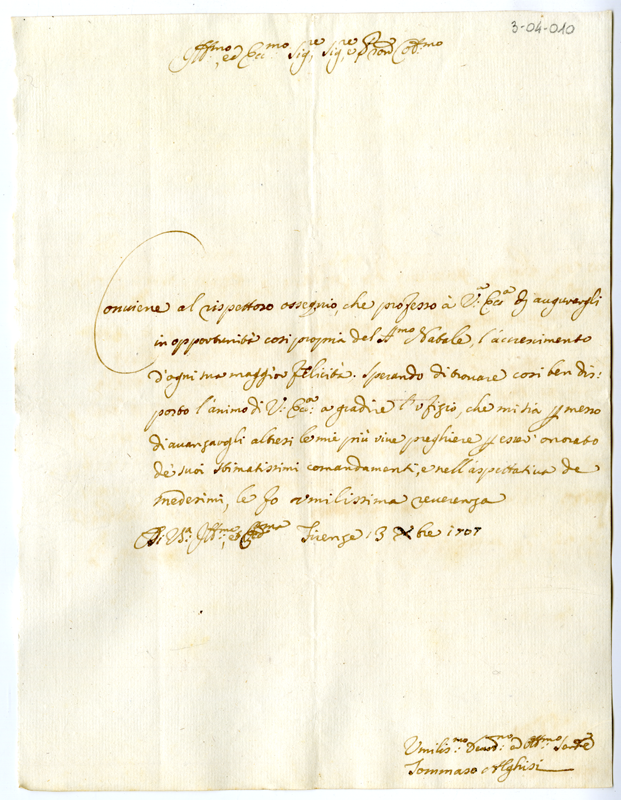 3-04-010
Ill.mo, ed Ecc.mo Sig.re Sig.re e Pron Col.mo
Conviene al rispettoso ossequio, che professo à V.a Ecc.a di augurargli
in opportunità cosi propria del S.mo Natale, l'accrescimento
d'ogni sua maggior felicità. Sperando di trovare cosi ben dis=
posto l'animo di V.a Ecc.a a gradire l'ofizio, che mi sia permesso
di avanzarogli altresi le mie più vive preghiere per esser onorato
de' suoi stimatissimi comandamenti, e nell'aspettativa de
medesimi, le fo umilissima reverenza
Di V.a Ill.ma, ed Ecc.ma Firenze 13 Xbre 1707
Umiliss.mo Devot.mo ed Obb.mo Serv.e
Tommaso Alghisi